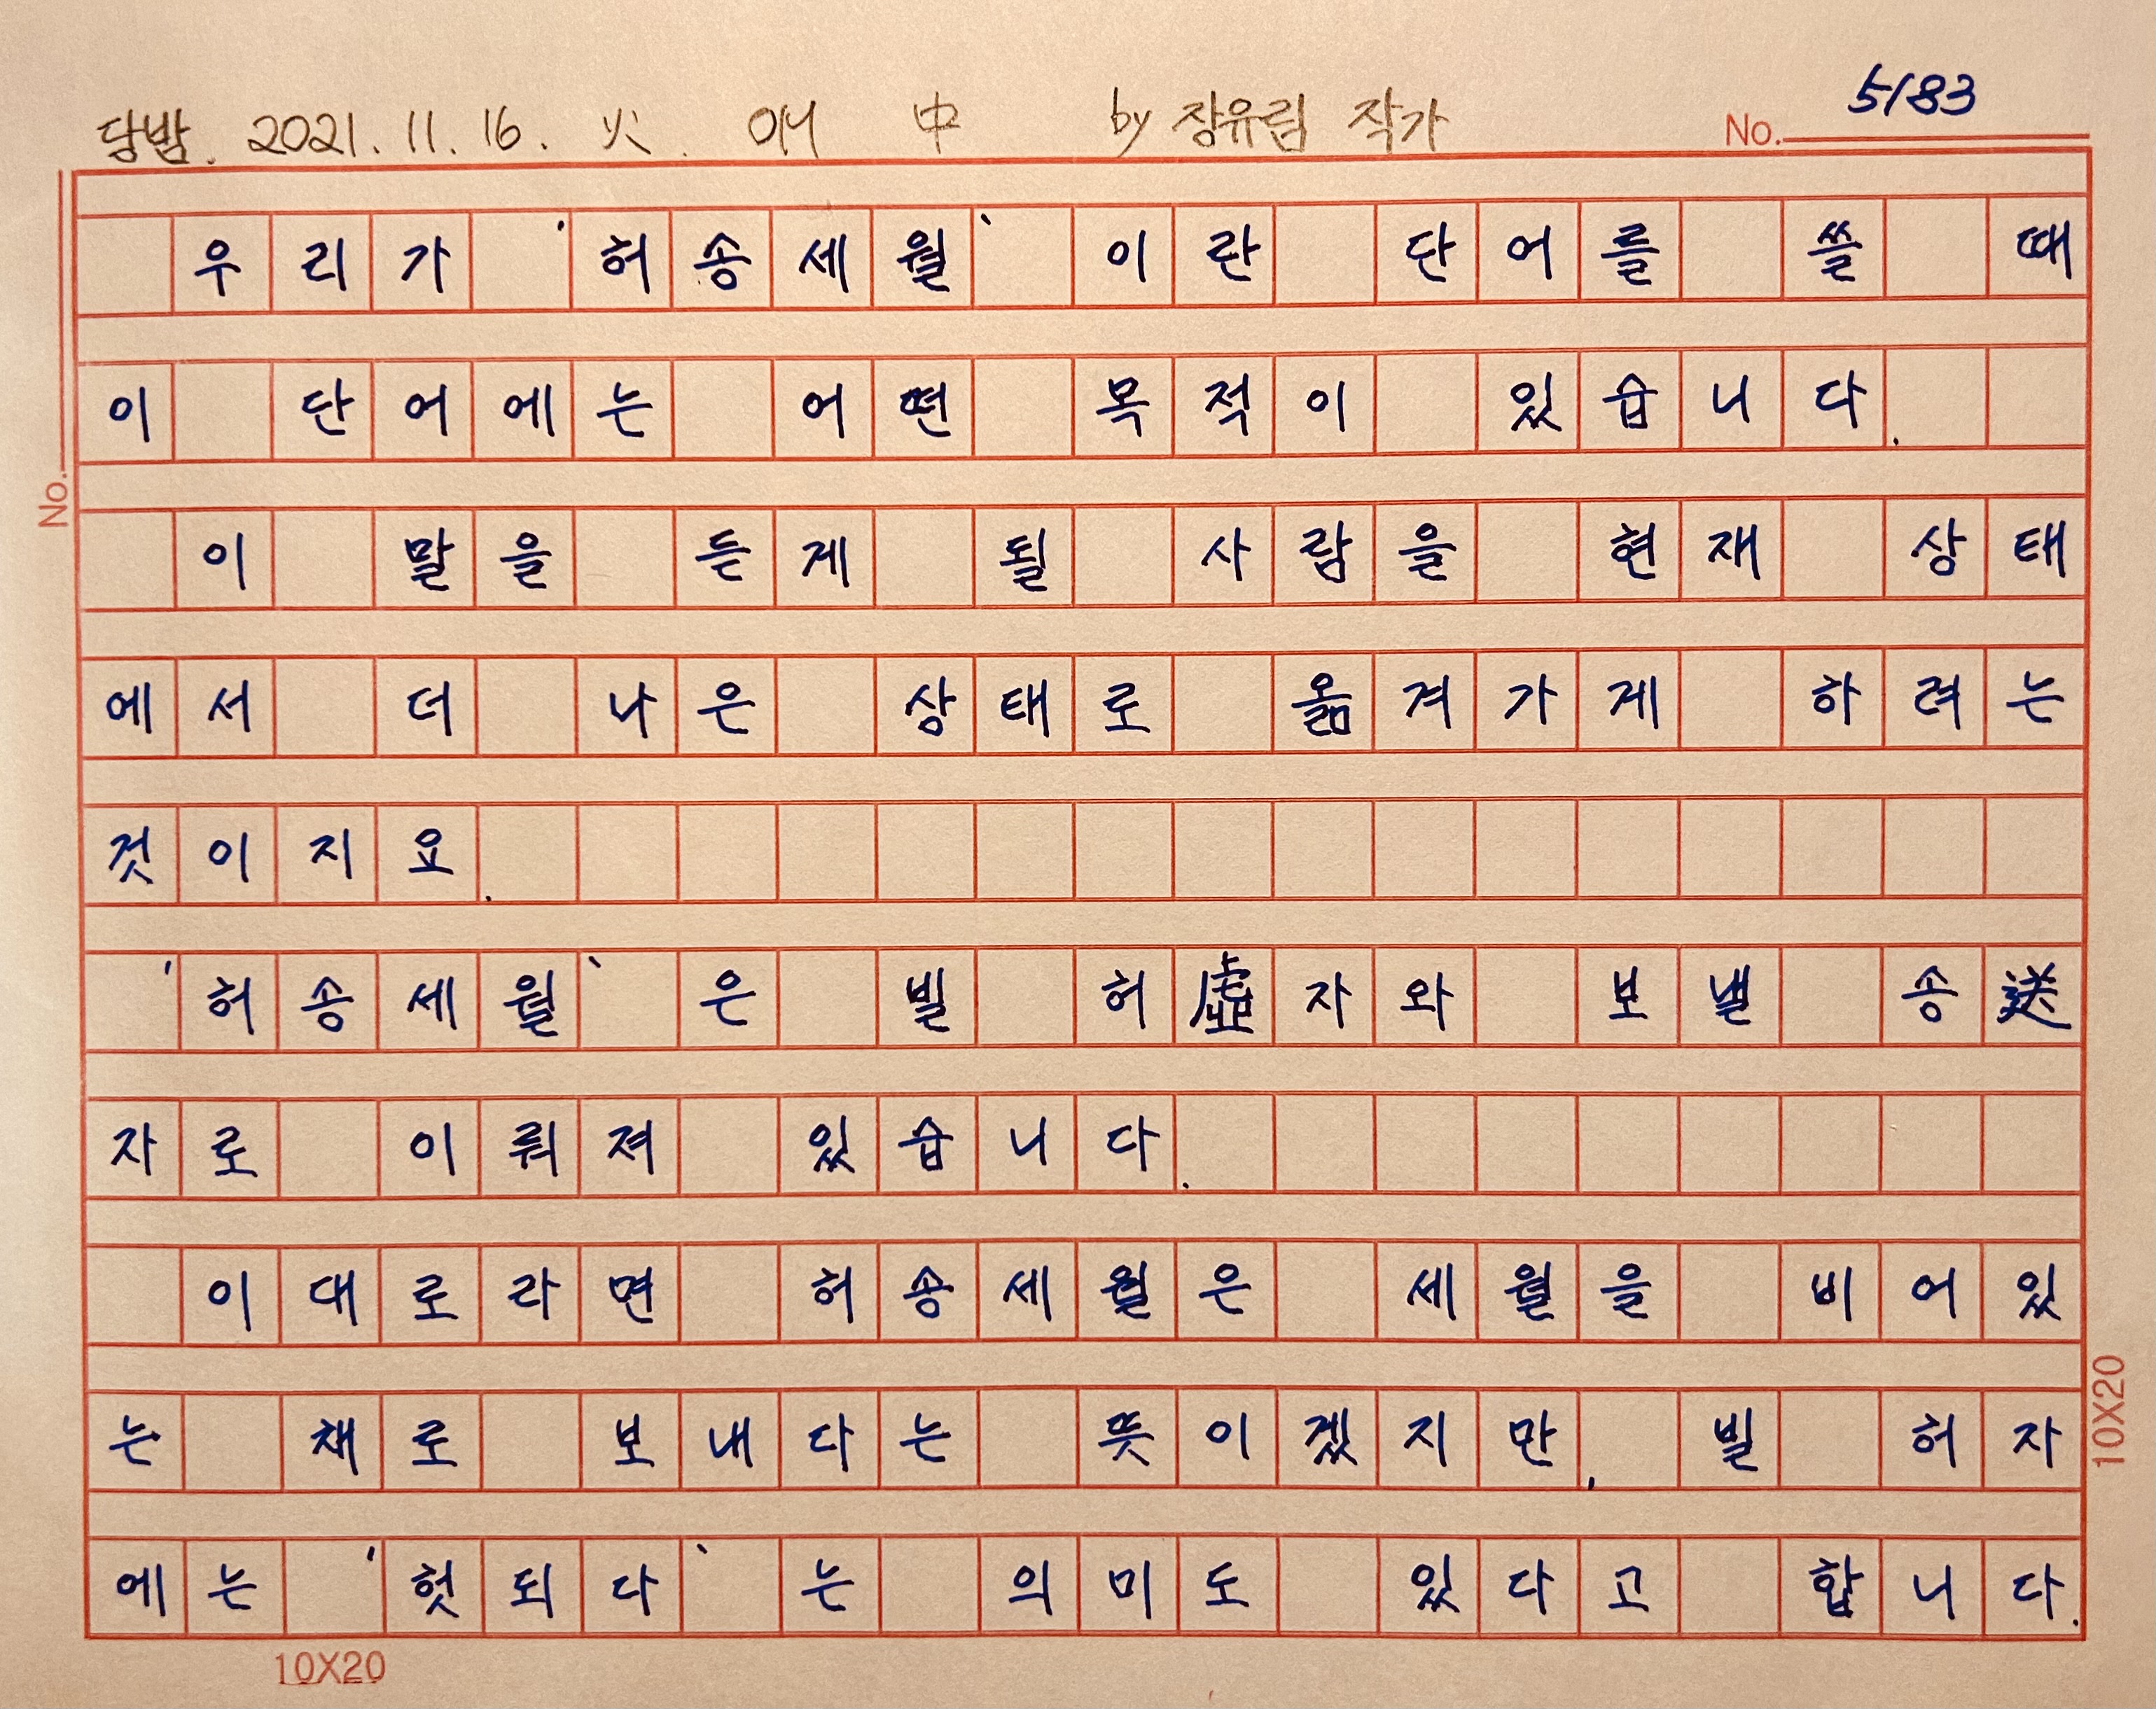 당밤. 2021. 11. 16. 火. OH 中 by 장유림 작가
No. 5183
우리가 '허송세월'이란 단어를 쓸 때
이 단어에는 어떤 목적이 있습니다.
이 말을 듣게 될 사람을 현재 상태
에서 더 나은 상태로 옮겨가게 하려는
것이지요.
'허송세월'은 빌 허虛자와 보낼 송送
자로 이뤄져 있습니다.
이대로라면 허송세월은 세월을 비어있
는 채로 보내다는 뜻이겠지만, 빌 허자
에는 '헛되다'는 의미도 있다고 합니다.
No.
10X20
10X20